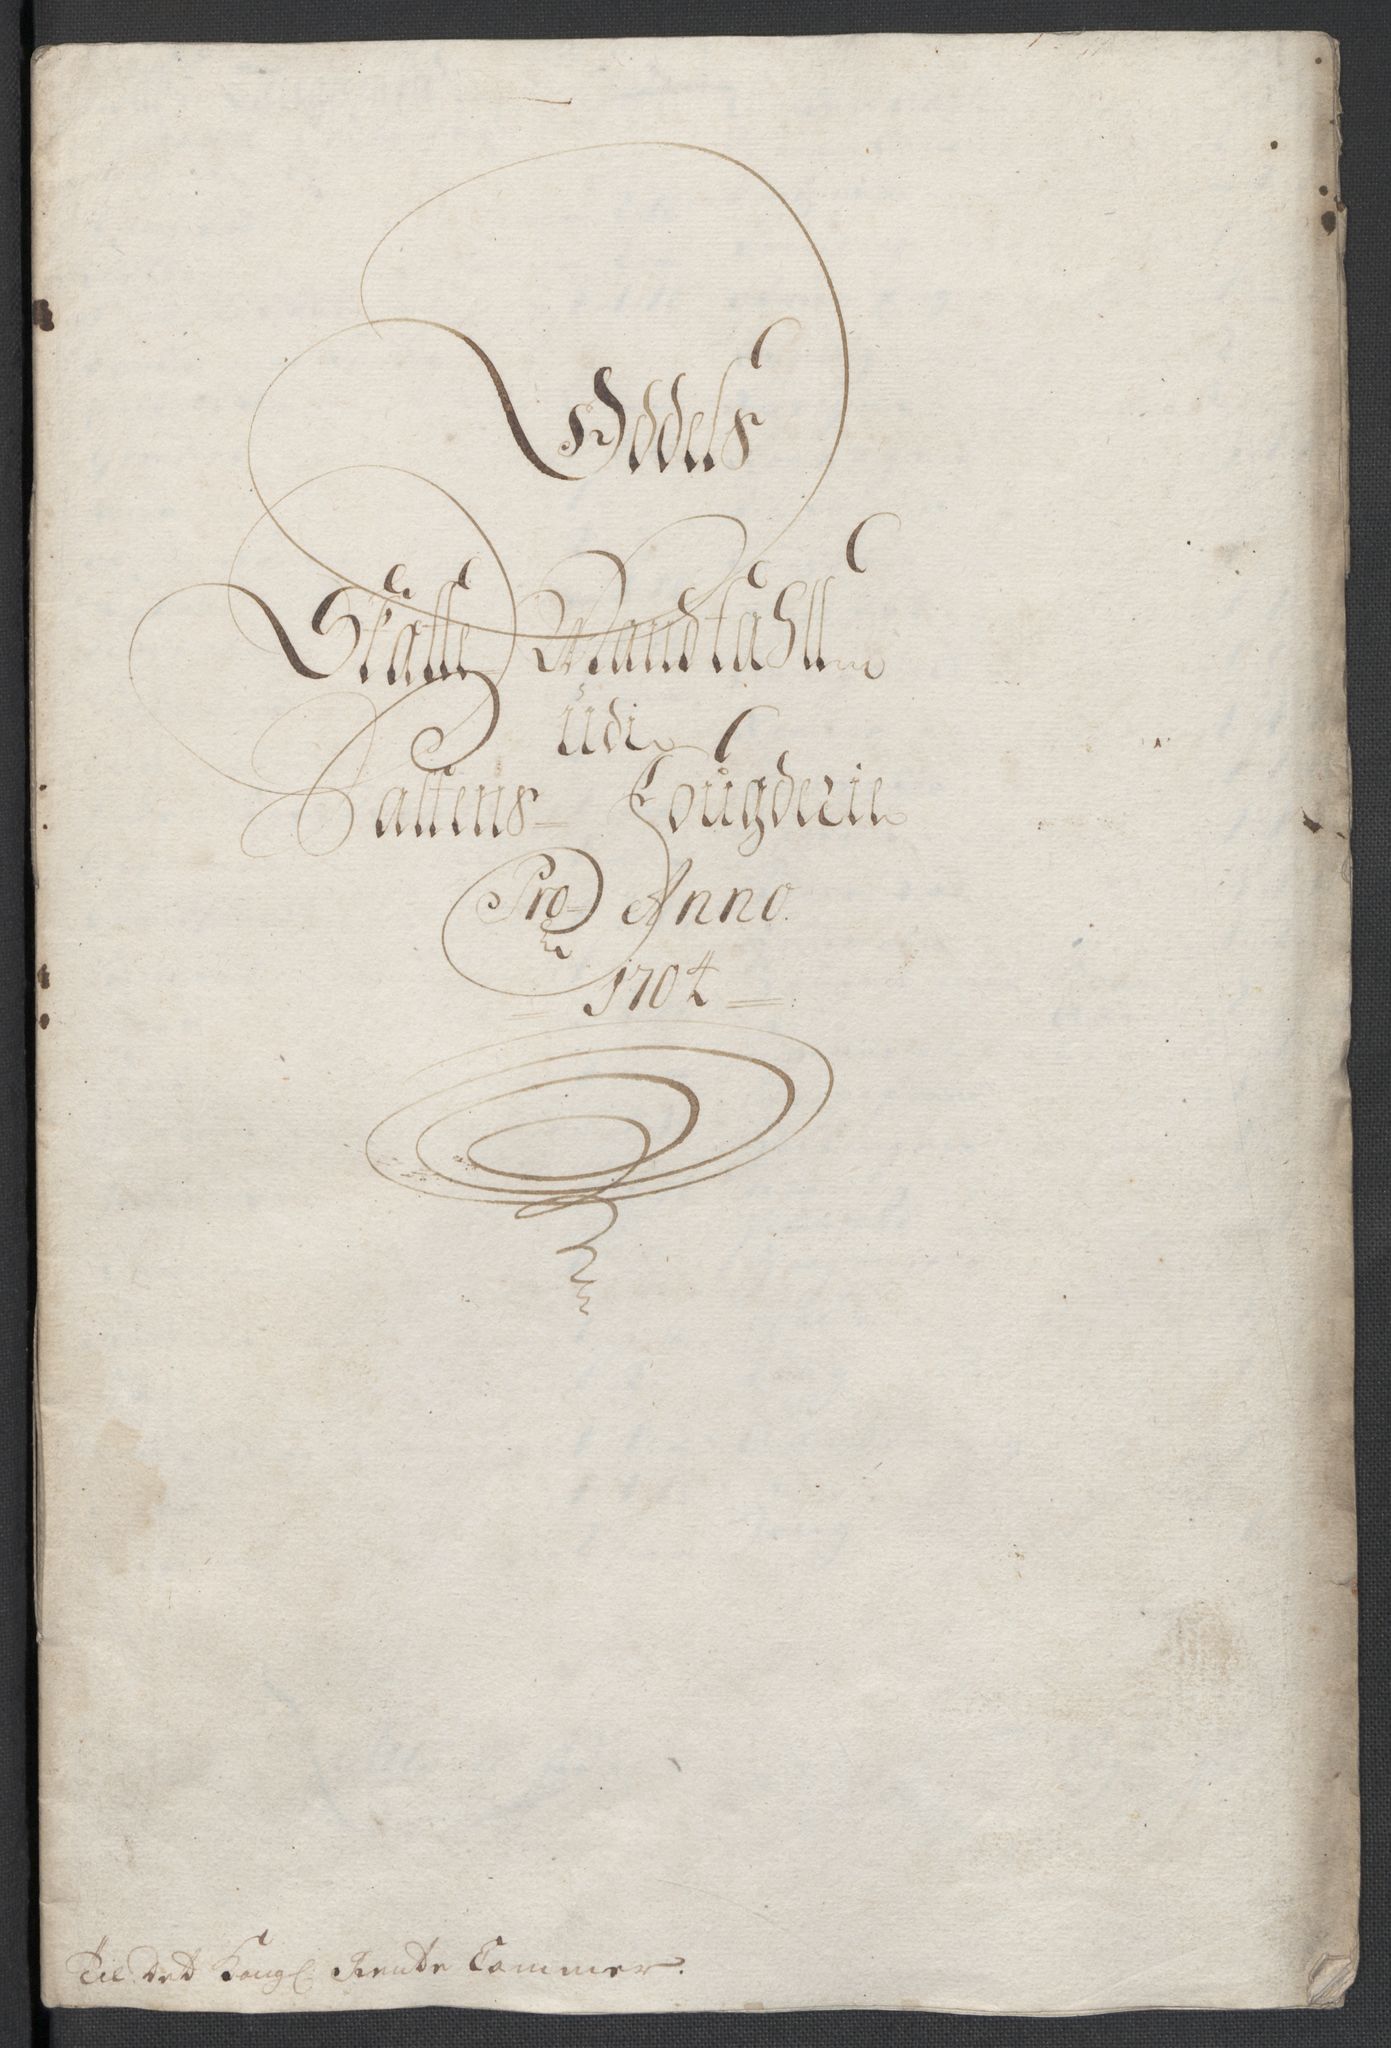 Oddels
Skatte Mandtahll
udi
Saltens Fougderie
Pro Anno
1704
Til Det Kongl: Rente Cammer.